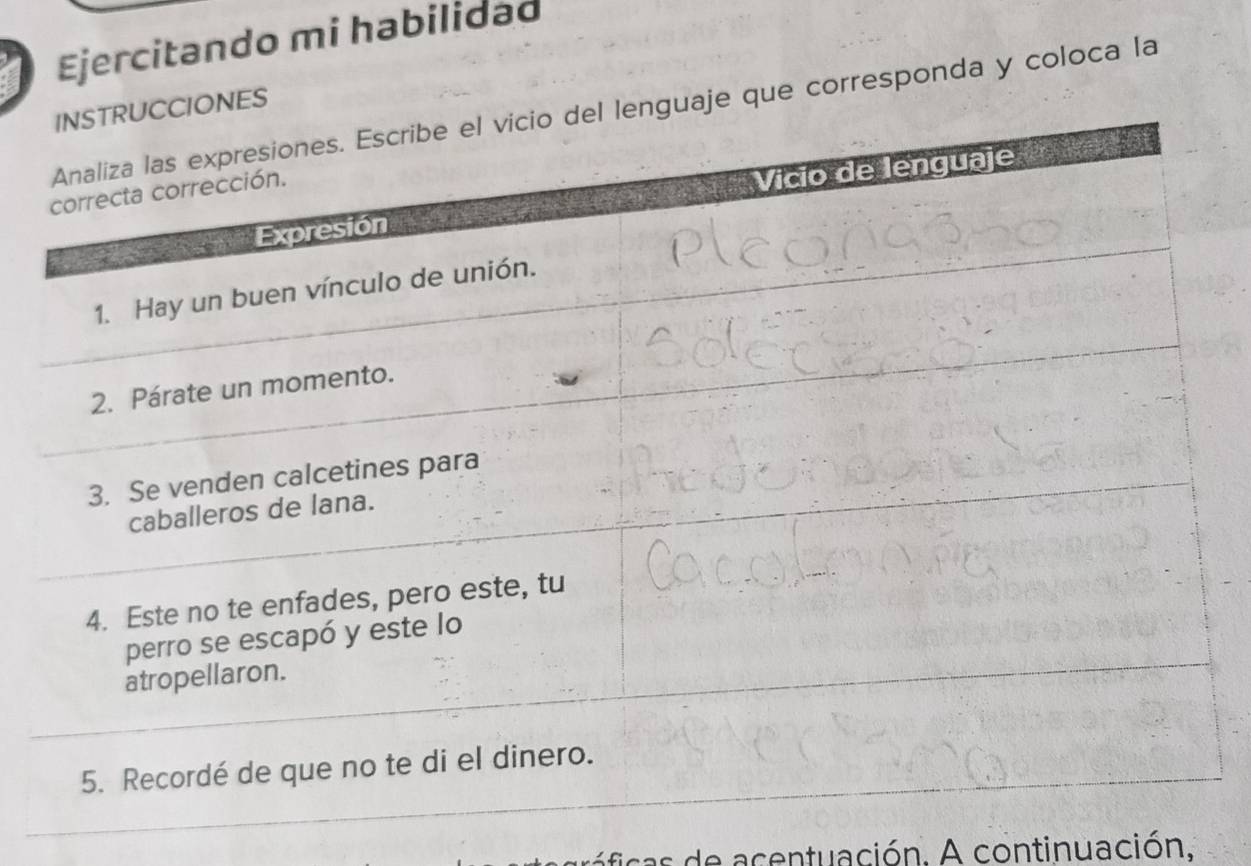 Ejercitando mi habilidad
INSTRUCCIONES
Analiza las expresiones. Escribe el vicio del lenguaje que corresponda y coloca la
correcta corrección.
Expresión Vicio de lenguaje
1. Hay un buen vínculo de unión. Pleonasmo
2. Párate un momento. Solecismo
3. Se venden calcetines para
caballeros de lana.
4. Este no te enfades, pero este, tu
perro se escapó y este lo
atropellaron.
5. Recordé de que no te di el dinero.
de acentuación. A continuación,